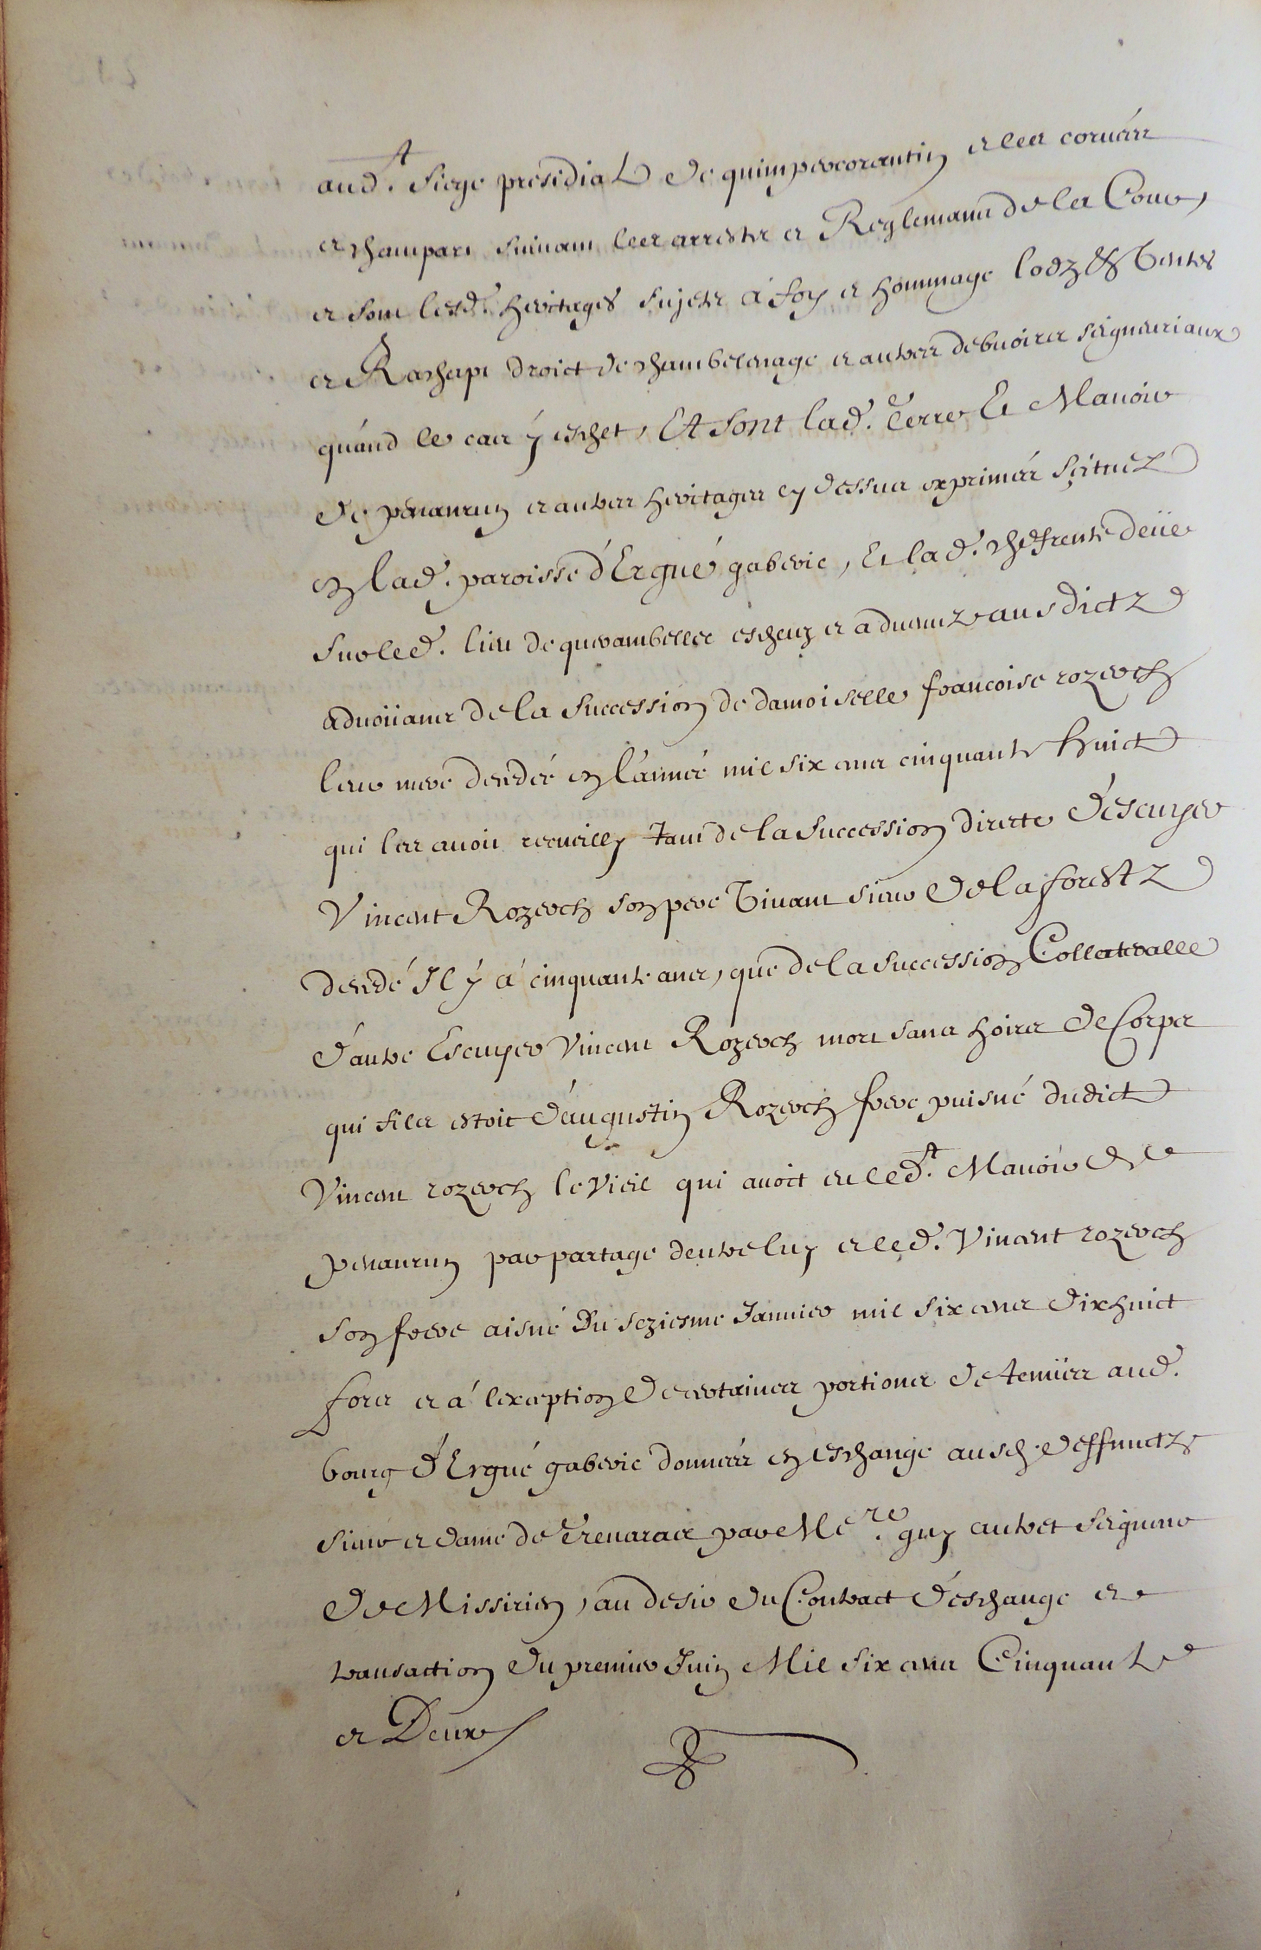 aud.t siege presidial de quimpercorantin et les corvées
et champart suivant les arrestz et Reglemant de la Cour,
et sont lesd. heritages sujetz a foy et hommage lodz & Ventes
et Rachapt droict de chambelenage et autres debvoirs seigneuriaux
quand le cas y eschet, Et sont lad. Terre Et Manoir
de penanrun et autres heritages cy dessus exprimés scituez
en lad. paroisse d'Ergué gaberic, Et lad. chefrente deüe
sur led. lieu de queranbellec escheuz et advenuz ausdictz
advoüans de la succession de damoiselle francoise rozerch
leur mere deceddé en l'année mil six cens cinquante huict
qui les avoit recueilly tant de la succession directe d'escuyer
Vincent Rozerch son pere Vivant sieur de la forestz
decedé Il y a cinquante ans, que de la succession Collateralle
d'autre Escuyer Vincent Rozerch mort sans hoirs de Corps
qui fils estoit d'augustin Rozerch frere puisné dudict
Vincent rozerch le vieil qui avoit eu led.t Manoir de
penanrun par partage d'entre luy et led. Vincent rozerch
son frere aisné du seziesme Janvier mil six cens dixhuict
fors et a l'exception de certaines portions de tenües aud.
bourg d'Ergué gaberic données en eschange ausd. deffunctz
sieur et dame de Trenarar par Me.re guy autret seigneur
de Missirien, au desir du Contract d'eschange et
transaction du premier Juin Mil six cens Cinquante
et Deux